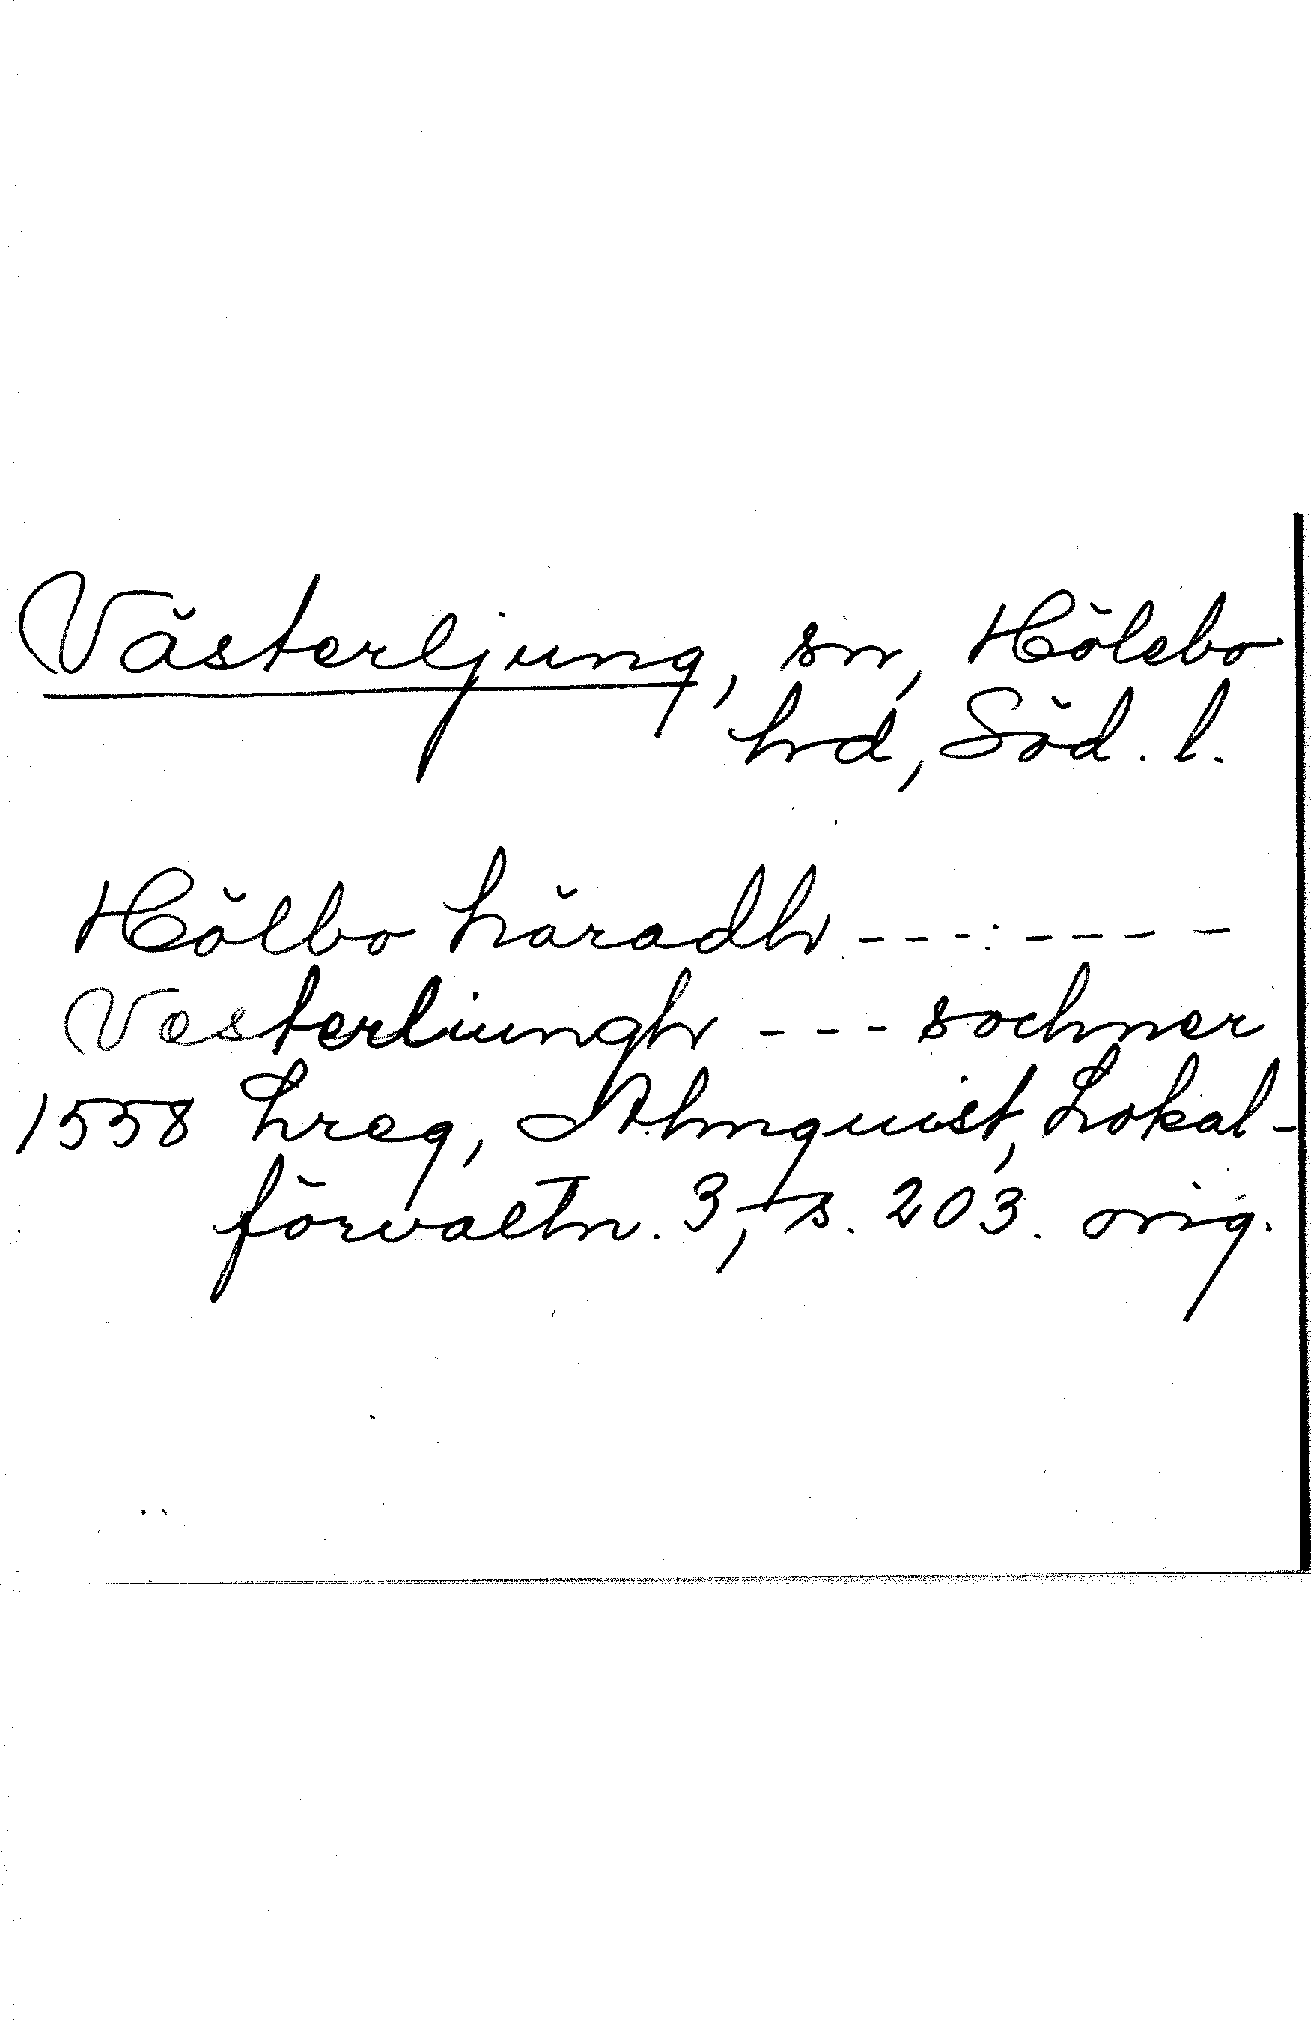 Västerljung, sn, Hölebo
hd, Söd. l.
Hölbo häradh --------
Vesterliungh --- sochner
1558 Lreg, Almquist, Lokal-
förvaltn. 3, s. 203. orig.